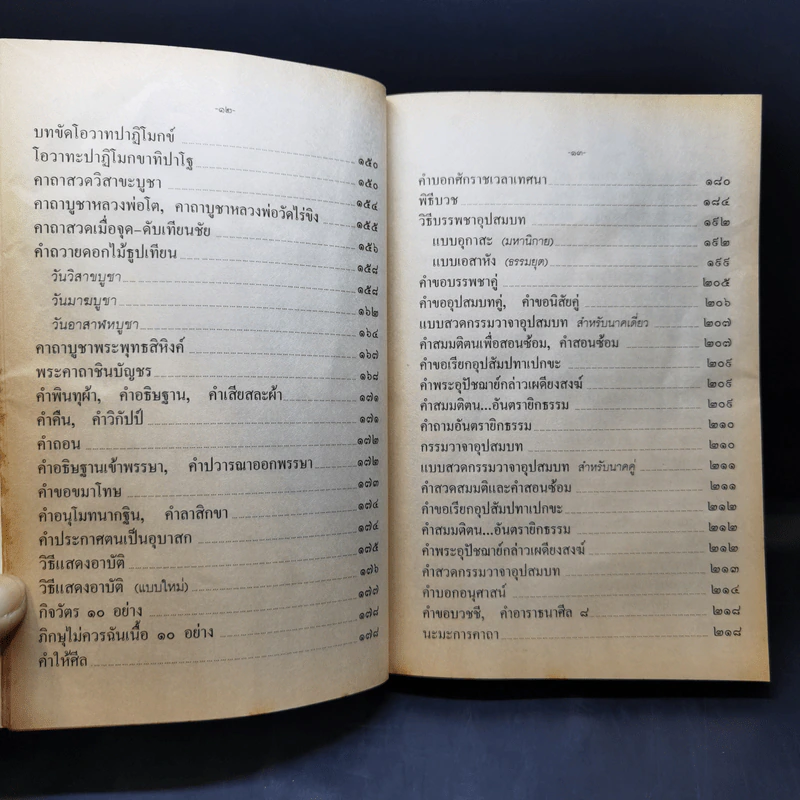 -๑๒-
บทขัดโอวาทปาฏิโมกข์ ๑๕๐
โอวาทะปาฏิโมกขาทิปาโฐ ๑๕๐
คาถาสวดวิสาขะบูชา ๑๕๔
คาถาบูชาหลวงพ่อโต, คาถาบูชาหลวงพ่อวัดไร่ขิง ๑๕๕
คาถาสวดเมื่อจุด-ดับเทียนชัย ๑๕๖
คำถวายดอกไม้ธูปเทียน ๑๕๘
วันวิสาขบูชา ๑๕๘
วันมาฆบูชา ๑๖๒
วันอาสาฬหบูชา ๑๖๔
คาถาบูชาพระพุทธสิหิงค์ ๑๖๗
พระคาถาชินบัญชร ๑๖๘
คำพินทุผ้า, คำอธิษฐาน, คำเสียสละผ้า ๑๗๑
คำคืน, คำวิกัปป์ ๑๗๑
คำถอน ๑๗๒
คำอธิษฐานเข้าพรรษา, คำปวารณาออกพรรษา ๑๗๒
คำขอขมาโทษ ๑๗๓
คำอนุโมทนากฐิน, คำลาสิกขา ๑๗๔
คำประกาศตนเป็นอุบาสก ๑๗๔
วิธีแสดงอาบัติ ๑๗๕
วิธีแสดงอาบัติ (แบบใหม่) ๑๗๖
กิจวัตร ๑๐ อย่าง ๑๗๗
ภิกษุไม่ควรฉันเนื้อ ๑๐ อย่าง ๑๗๘
คำให้ศีล ๑๗๘
-๑๓-
คำบอกศักราชเวลาเทศนา ๑๘๐
พิธีบวช ๑๘๔
วิธีบรรพชาอุปสมบท ๑๙๒
แบบอุกาสะ (มหานิกาย) ๑๙๒
แบบเอสาหัง (ธรรมยุต) ๑๙๙
คำขอบรรพชาคู่ ๒๐๕
คำขออุปสมบทคู่, คำขอนิสัยคู่ ๒๐๖
แบบสวดกรรมวาจาอุปสมบท สำหรับนาคเดี่ยว ๒๐๗
คำสมมติตนเพื่อสอนซ้อม, คำสอนซ้อม ๒๐๗
คำขอเรียกอุปสัมปทาเปกขะ ๒๐๙
คำพระอุปัชฌาย์กล่าวเผดียงสงฆ์ ๒๐๙
คำสมมติตน...อันตรายิกธรรม ๒๐๙
คำถามอันตรายิกธรรม ๒๑๐
กรรมวาจาอุปสมบท ๒๑๐
แบบสวดกรรมวาจาอุปสมบท สำหรับนาคคู่ ๒๑๑
คำสวดสมมติและคำสอนซ้อม ๒๑๑
คำขอเรียกอุปสัมปทาเปกขะ ๒๑๒
คำสมมติตน...อันตรายิกธรรม ๒๑๒
คำพระอุปัชฌาย์กล่าวเผดียงสงฆ์ ๒๑๒
คำสวดกรรมวาจาอุปสมบท ๒๑๓
คำบอกอนุศาสน์ ๒๑๔
คำขอบวชชี, คำอาราธนาศีล ๘ ๒๑๘
นะมะการคาถา ๒๑๘